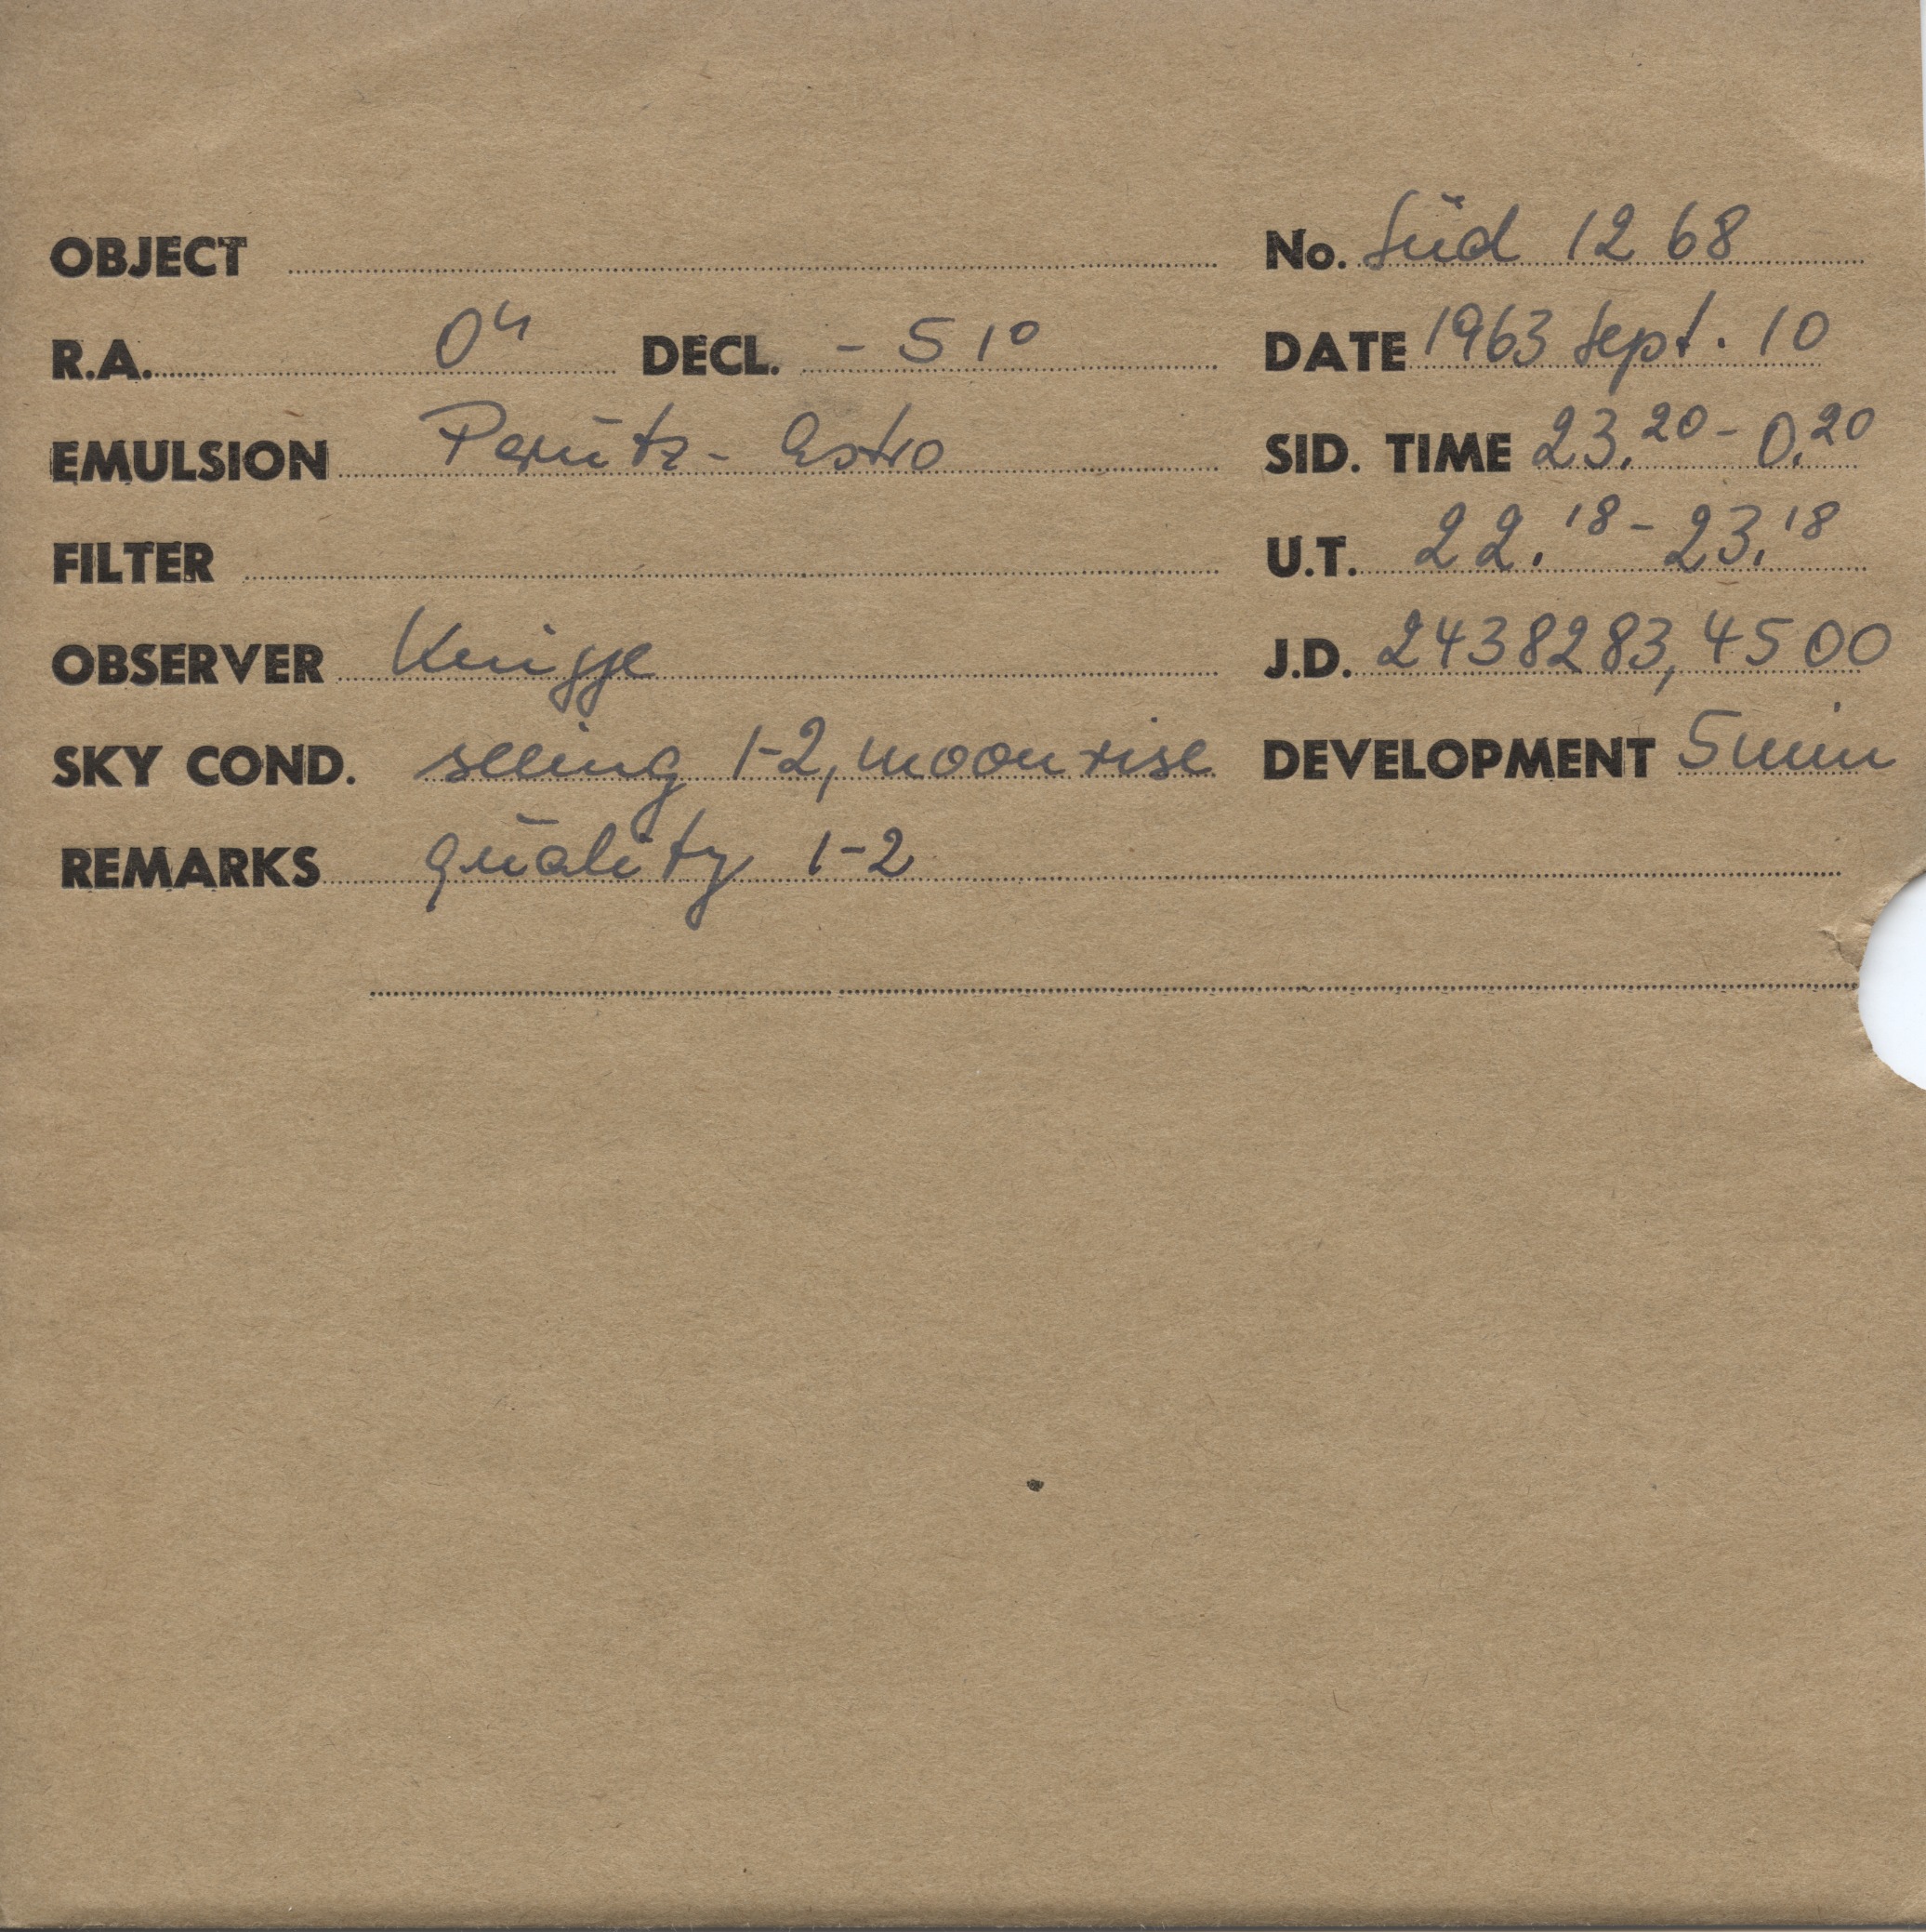 OBJECT No. Süd 1268
R.A. 0h DECL. - 51° DATE 1963 Sept. 10
EMULSION Perutz - Astro SID. TIME 23.20 - 0.20
FILTER U.T. 22.18 - 23.18
OBSERVER Knigge J.D. 2438283,4500
SKY COND. seeing 1-2, moonrise DEVELOPMENT 5 min
REMARKS quality 1-2